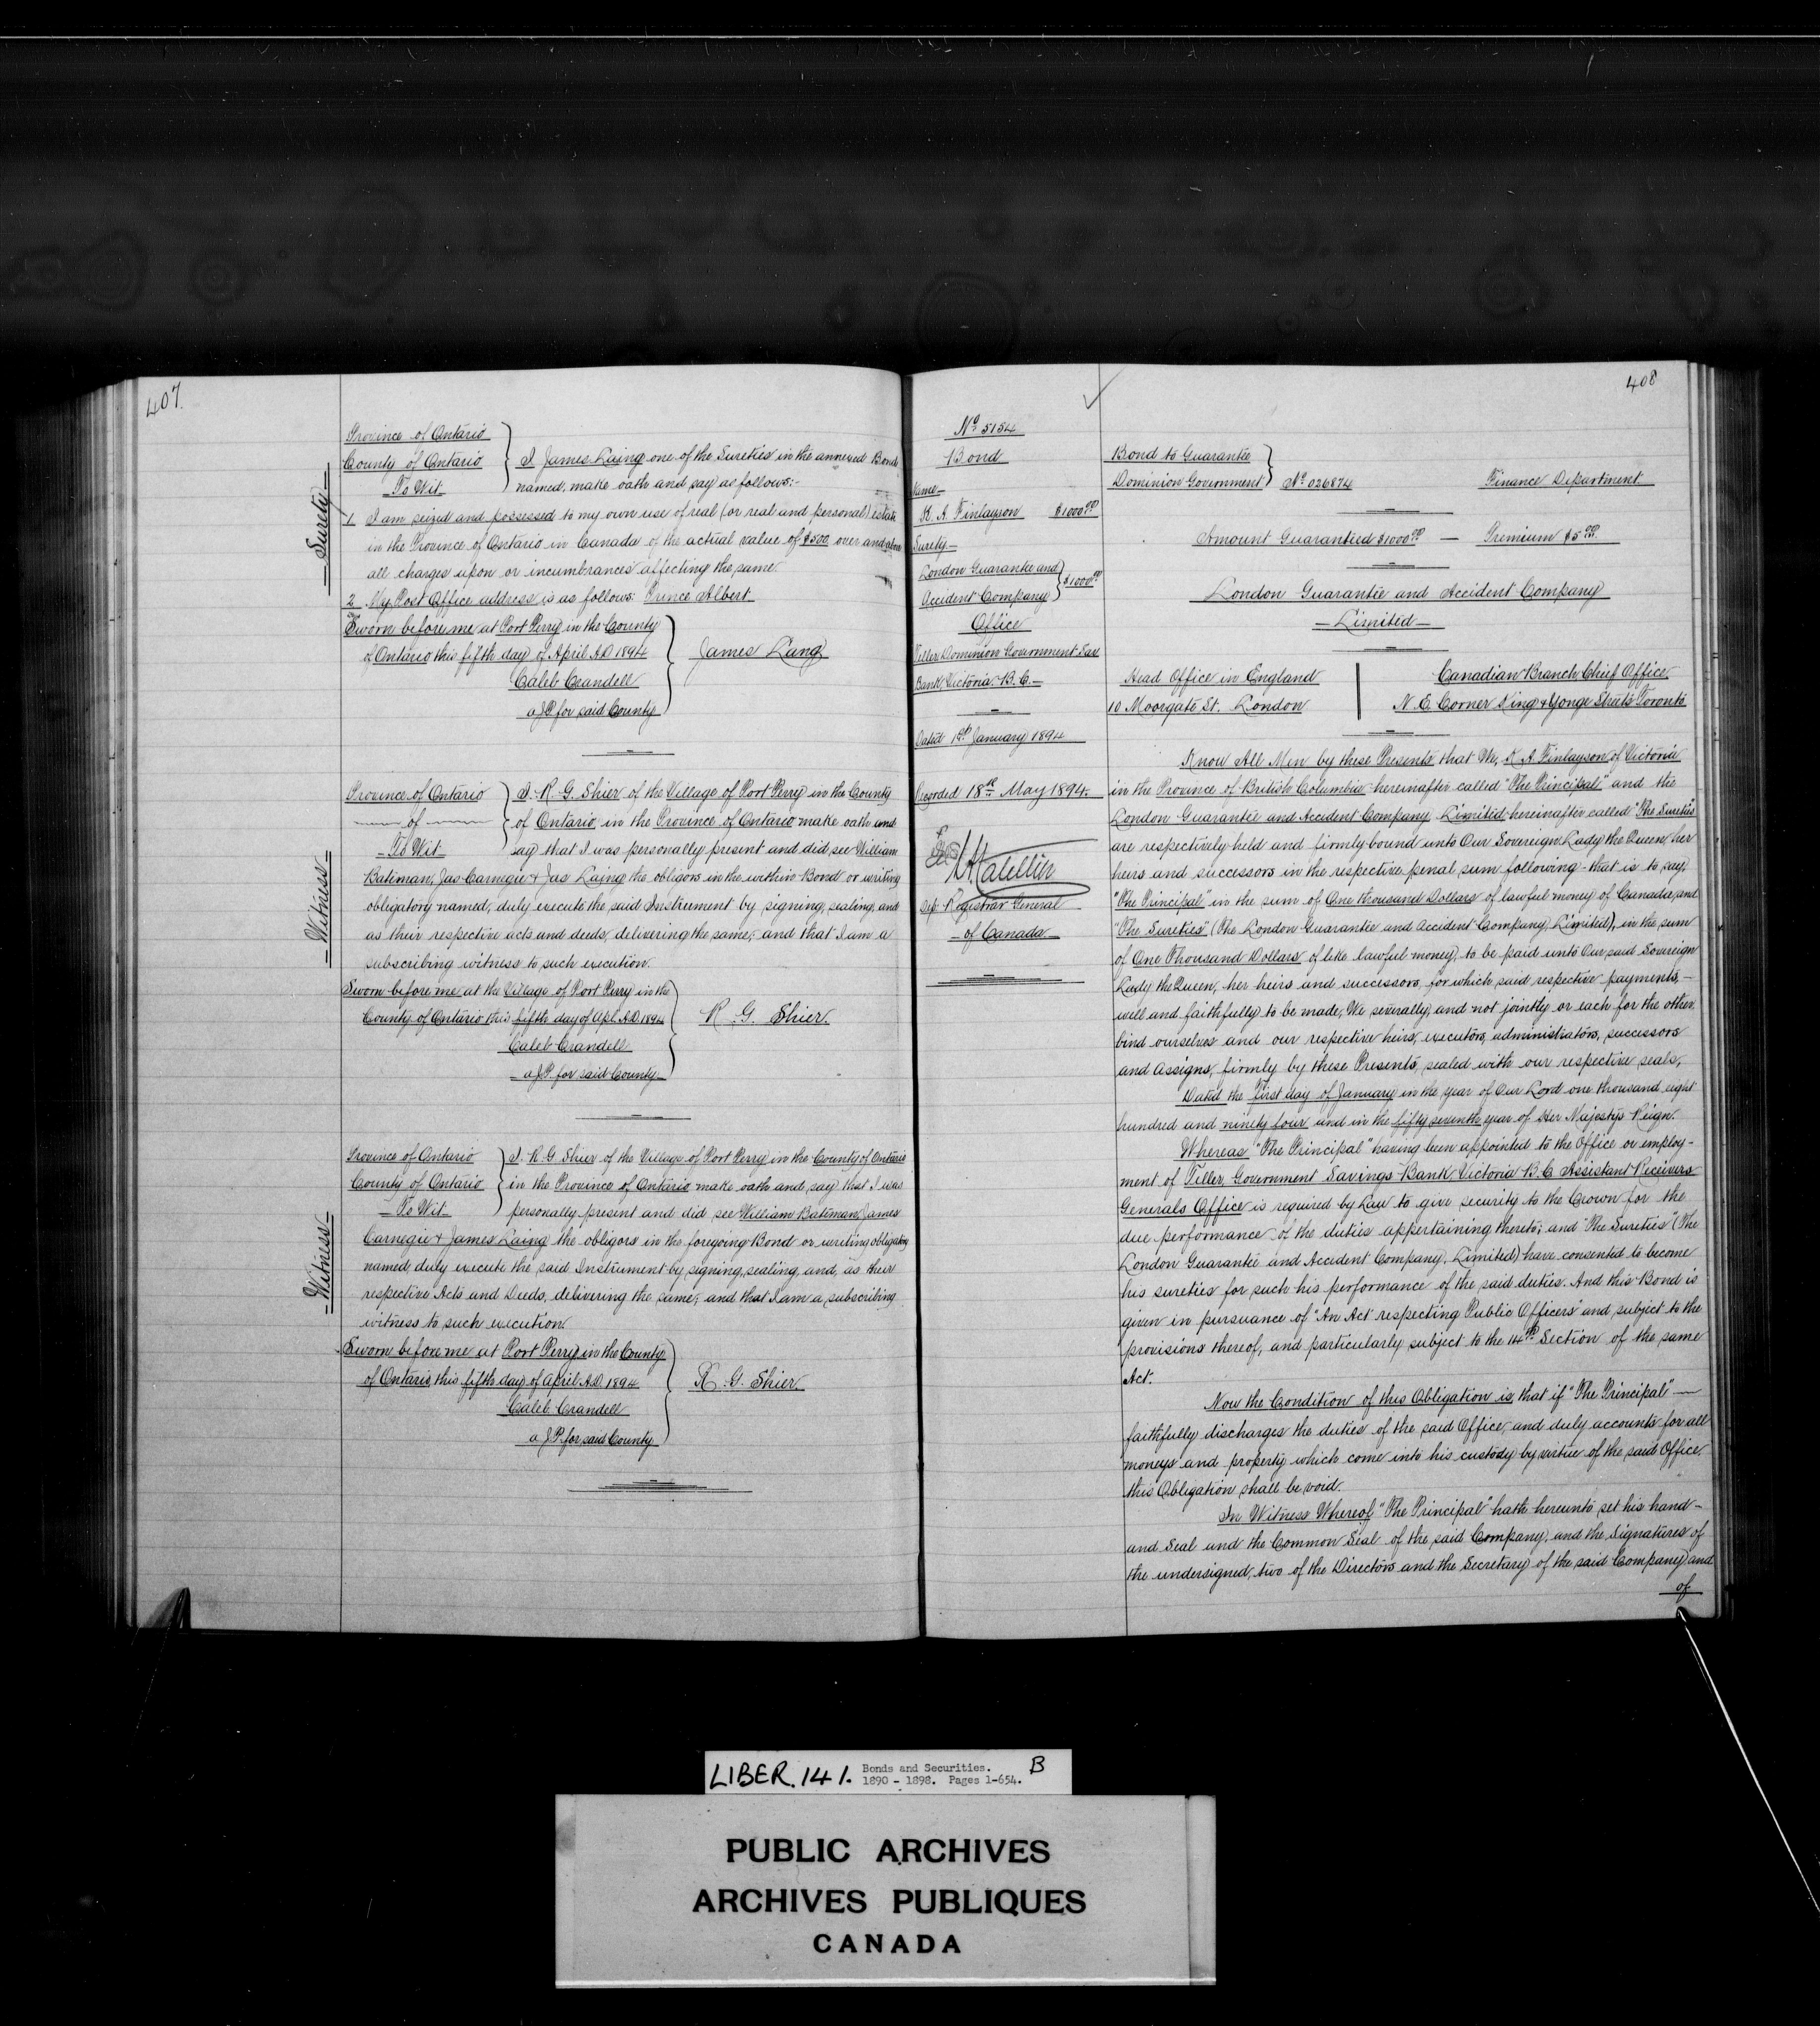 407.
Province of Ontario
County of Ontario
To Wit
I James Laing one of the Sureties in the annexed Bond
named, make oath and say as follows:-
= Surety =
1 I am seized and possessed to my own use of real (or real and personal) estate
in the Province of Ontario in Canada of the actual value of $500 over and above
all charges upon or incumbrances affecting the same.
2 My Post Office address is as follows: Prince Albert
Sworn before me at Port Perry in the County
of Ontario this fifth day of April A.D. 1894
Caleb Crandell
a J.P. for said County
James Lang
Province of Ontario
of
To Wit
= Witness =
I. R. G. Shier of the Village of Port Perry in the County
of Ontario, in the Province of Ontario make oath and
say that I was personally present and did see William
Bateman, Jas Carnegie & Jas Laing the obligors in the within Bond or writing
obligatory named, duly execute the said Instrument by signing, sealing, and
as their respective acts and deeds, delivering the same; and that I am a
subscribing witness to such execution.
Sworn before me at the Village of Port Perry in the
County of Ontario this fifth day of Apl. A.D. 1894
Caleb Crandell
a J.P. for said County
R. G. Shier
Province of Ontario
County of Ontario
To Wit
= Witness =
I. R. G Shier of the Village of Port Perry in the County of Ontario
in the Province of Ontario make oath and say that I was
personally present and did see William Bateman, James
Carnegie & James Laing the obligors in the foregoing Bond or writing obligatory
named duly execute the said Instrument by signing, sealing, and, as their
respective Acts and Deeds, delivering the same; and that I am a subscribing
witness to such execution.
Sworn before me at Port Perry in the County
of Ontario, this fifth day of April A.D. 1894
Caleb Crandell
a J.P. for said County
R. G. Shier
408
No 5154
Bond
Name-
K. A. Finlayson $1000.00
Surety-
London Guarantee and
Accident Company $1000.00
Office
Teller Dominion Government Sav
Bank, Victoria. B.C.-
Dated 1st January 1894
Recorded 18th May 1894.
Dep. Registrar General
of Canada
Bond to Guarantee
Dominion Government
No 026874
Finance Department
Amount Guaranteed $1000.00 - Premium $5.00
London Guarantee and Accident Company
- Limited -
Head Office in England
10 Moorgate St. London
Canadian Branch Chief Office
N. E. Corner King & Yonge Streets Toronto
Know All Men by these Presents that We, K. A. Finlayson of Victoria
in the Province of British Columbia hereinafter called "The Principal" and the
London Guarantee and Accident Company Limited, hereinafter called "The Sureties
are respectively held and firmly bound unto Our Sovereign Lady the Queen, her
heirs and successors in the respective penal sum following - that is to say;
"The Principal" in the sum of One thousand Dollars of lawful money of Canada, and
"The Sureties" (The London Guarantee and Accident Company Limited), in the sum
of One Thousand Dollars of like lawful money, to be paid unto Our said Sovereign
Lady the Queen, her heirs and successors, for which said respective payments,-
well and faithfully to be made, We severally, and not jointly or each for the other,
bind ourselves and our respective heirs, executors, administrators, successors
and assigns, firmly by these Presents, sealed with our respective seals,
Dated the first day of January in the year of Our Lord one thousand eight
hundred and ninety four and in the fifty seventh year of Her Majestys Reign.
Whereas "The Principal" having been appointed to the Office or employ-
ment of Teller, Government Savings Bank, Victoria B.C. Assistant Receivers
Generals Office is required by Law to give security to the Crown for the
due performance of the duties appertaining thereto; and "The Sureties" (The
London Guarantee and Accident Company, Limited) have consented to become
his sureties for such his performance of the said duties. And this Bond is
given in pursuance of "An Act respecting Public Officers" and subject to the
provisions thereof, and particularly subject to the 14th Section of the same
Act.
Now the Condition of this Obligation is, that if "The Principal" -
faithfully discharges the duties of the said Office, and duly accounts for all
moneys and property which come into his custody by virtue of the said Office
this Obligation shall be void.
In Witness Whereof "The Principal" hath hereunto set his hand -
and Seal and the Common Seal of the said Company, and the Signatures of
the undersigned, two of the Directors and the Secretary of the said Company and
of
LIBER. 141. Bonds and Securities. B
1890 - 1898. Pages 1-654.
PUBLIC ARCHIVES
ARCHIVES PUBLIQUES
CANADA